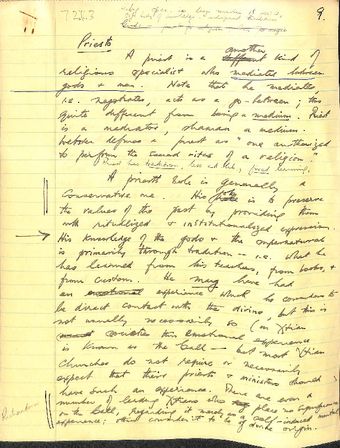 72K3
9.
Priests
A priest is a another kind of
religious specialist who mediates between
gods & men. Note that he mediates,
i.e. negotiates, acts as a go-between; this
quite different from being a medium. Priest
is a mediator, shaman a medium.
Webster defines a priest as "one authorized
to perform the sacred rites of a religion"
A priest's role is generally a
conservative one. His role is to preserve
the values of the past by providing them
with ritualized & institutionalized expression.
His knowledge of the gods & the supernatural
is primarily through tradition -- i.e. what he
has learned from his teachers, from books, &
from custom. He may have had
an experience which he considers to
be direct contact with the divine but this is
not usually necessary to (in Xtian
this emotional experience
is known as the Call -- but most Xtian
Churches do not require or necessarily
expect that their priests & ministers should
have such an experience. There are even a
number of leading Xtians who place no significance
on the Call, regarding it merely as a self-induced mental
experience; others consider it to be of divine origin.